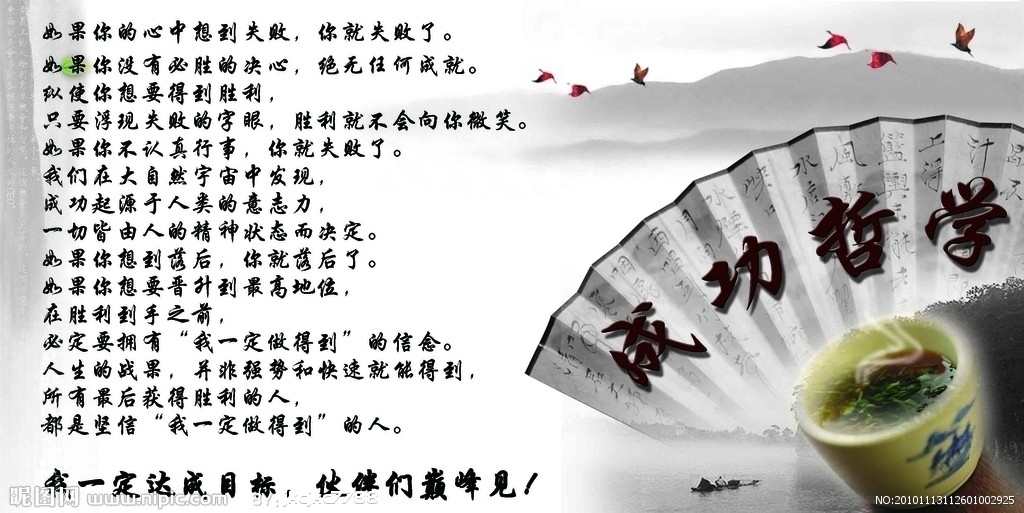 如果你的心中想到失败，你就失败了。
如果你没有必胜的决心，绝无任何成就。
纵使你想要得到胜利，
只要浮现失败的字眼，胜利就不会向你微笑。
如果你不认真行事，你就失败了。
我们在大自然宇宙中发现，
成功起源于人类的意志力，
一切皆由人的精神状态而决定。
如果你想到落后，你就落后了。
如果你想要晋升到最高地位，
在胜利到手之前，
必定要拥有“我一定做得到”的信念。
人生的战果，并非强势和快速就能得到，
所有最后获得胜利的人，
都是坚信“我一定做得到”的人。
我一定达成目标，伙伴们巅峰见！
成功哲学
昵图网 www.nipic.com
NO:20101113112601002925